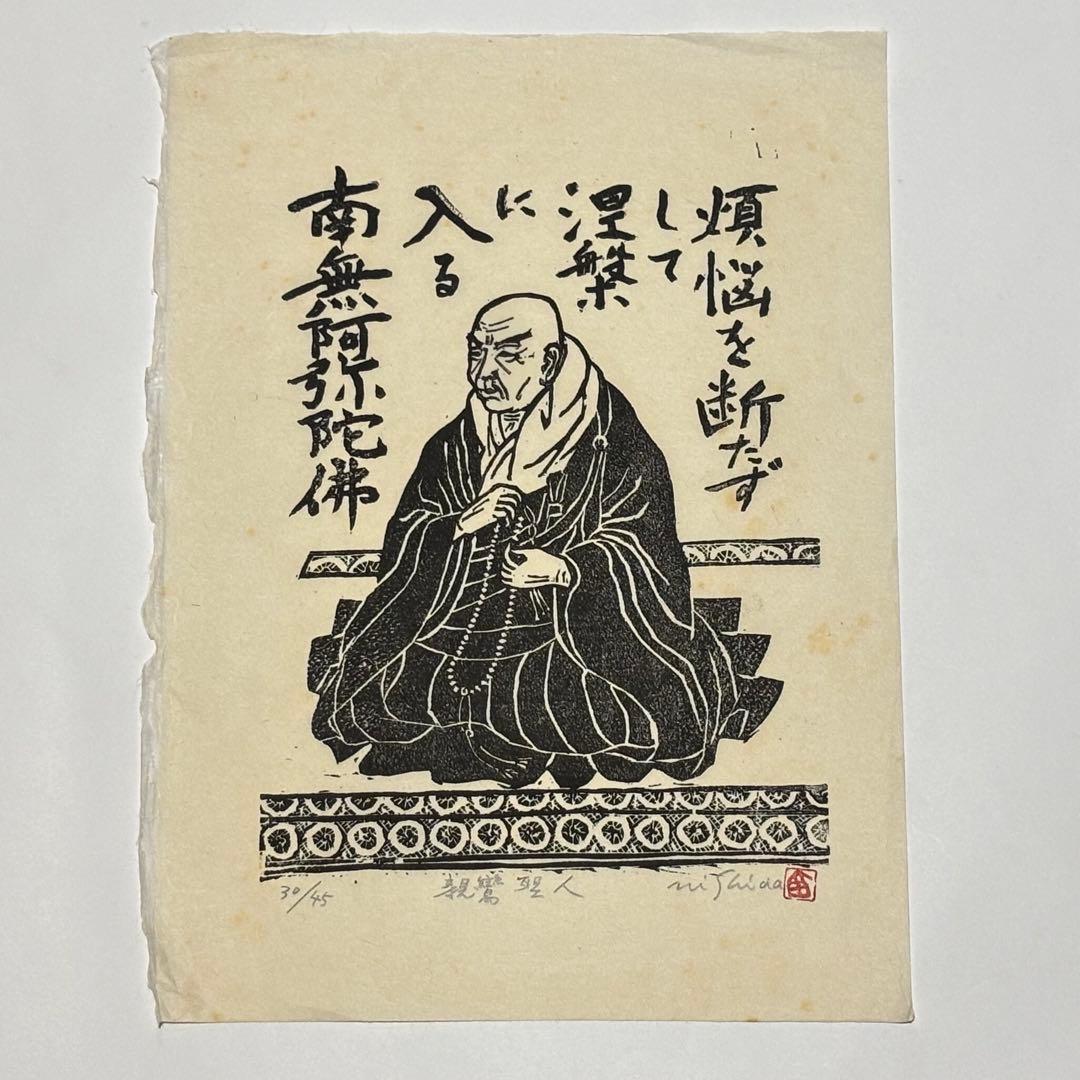 煩悩を断たず
して
涅槃
に
入る
南無阿弥陀佛
30/45
親鸞聖人
nishida